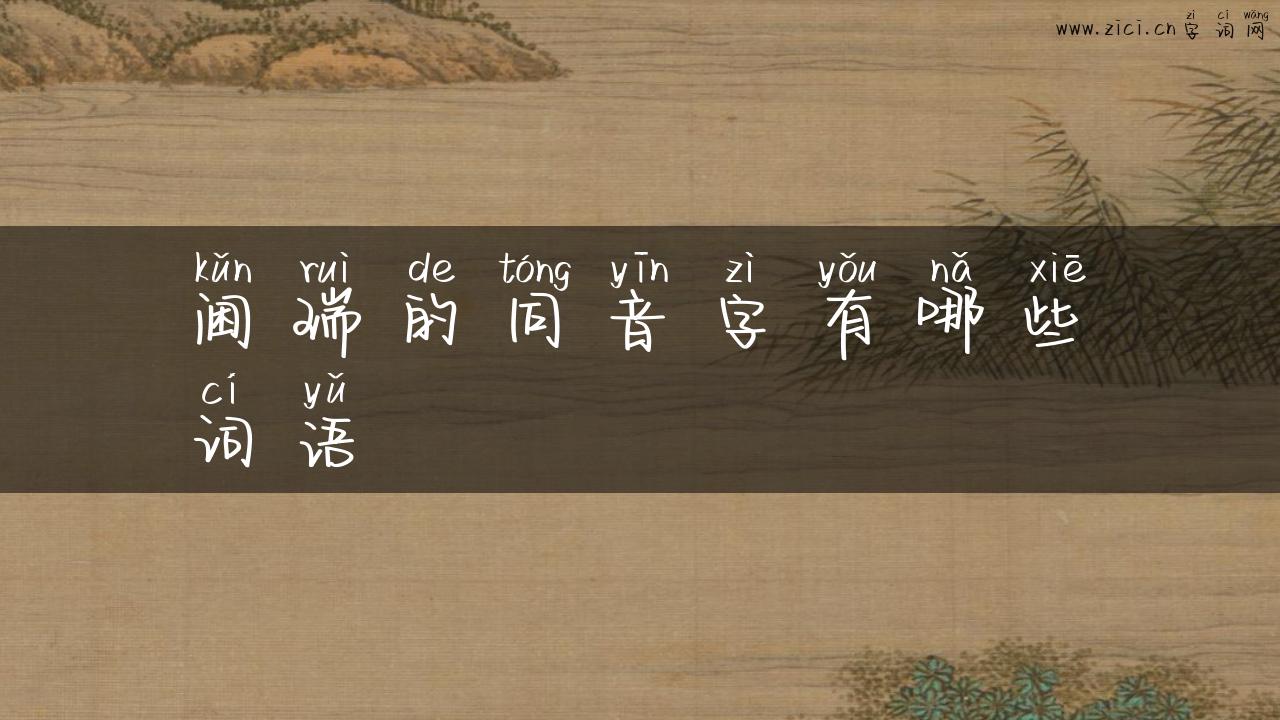 www.zici.cn 字词网
zì cí wǎng
kǔn ruì de tóng yīn zì yǒu nǎ xiē
阃瑞的同音字有哪些
cí yǔ
词语